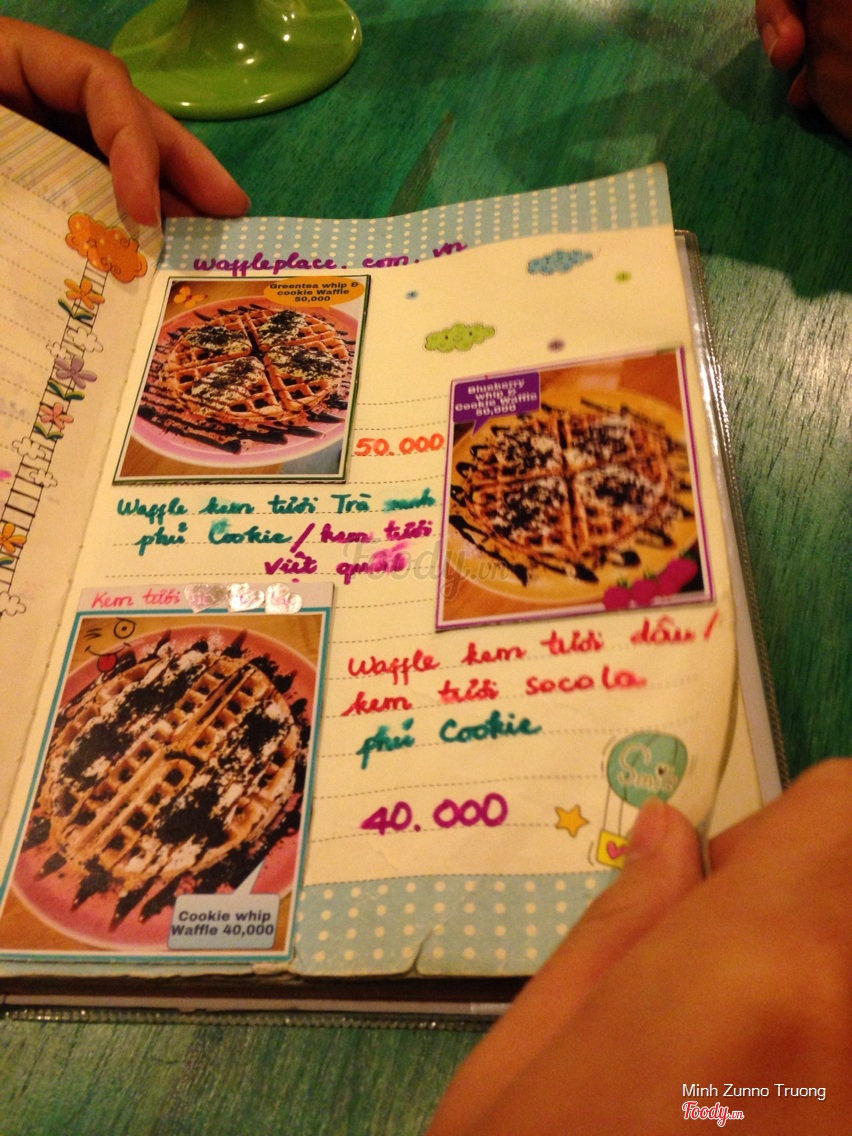 waffleplace.com.vn
Greentea whip &
cookie Waffle
50,000
50.000
Blueberry
whip &
Cookie Waffle
50,000
Waffle kem tươi Trà xanh
phủ Cookie/kem tươi
việt quất
Kem tươi
Waffle kem tươi dâu/
kem tươi socola
phủ Cookie
40.000
Smile
Cookie whip
Waffle 40,000
Foody.vn
Minh Zunno Truong
Foody.vn